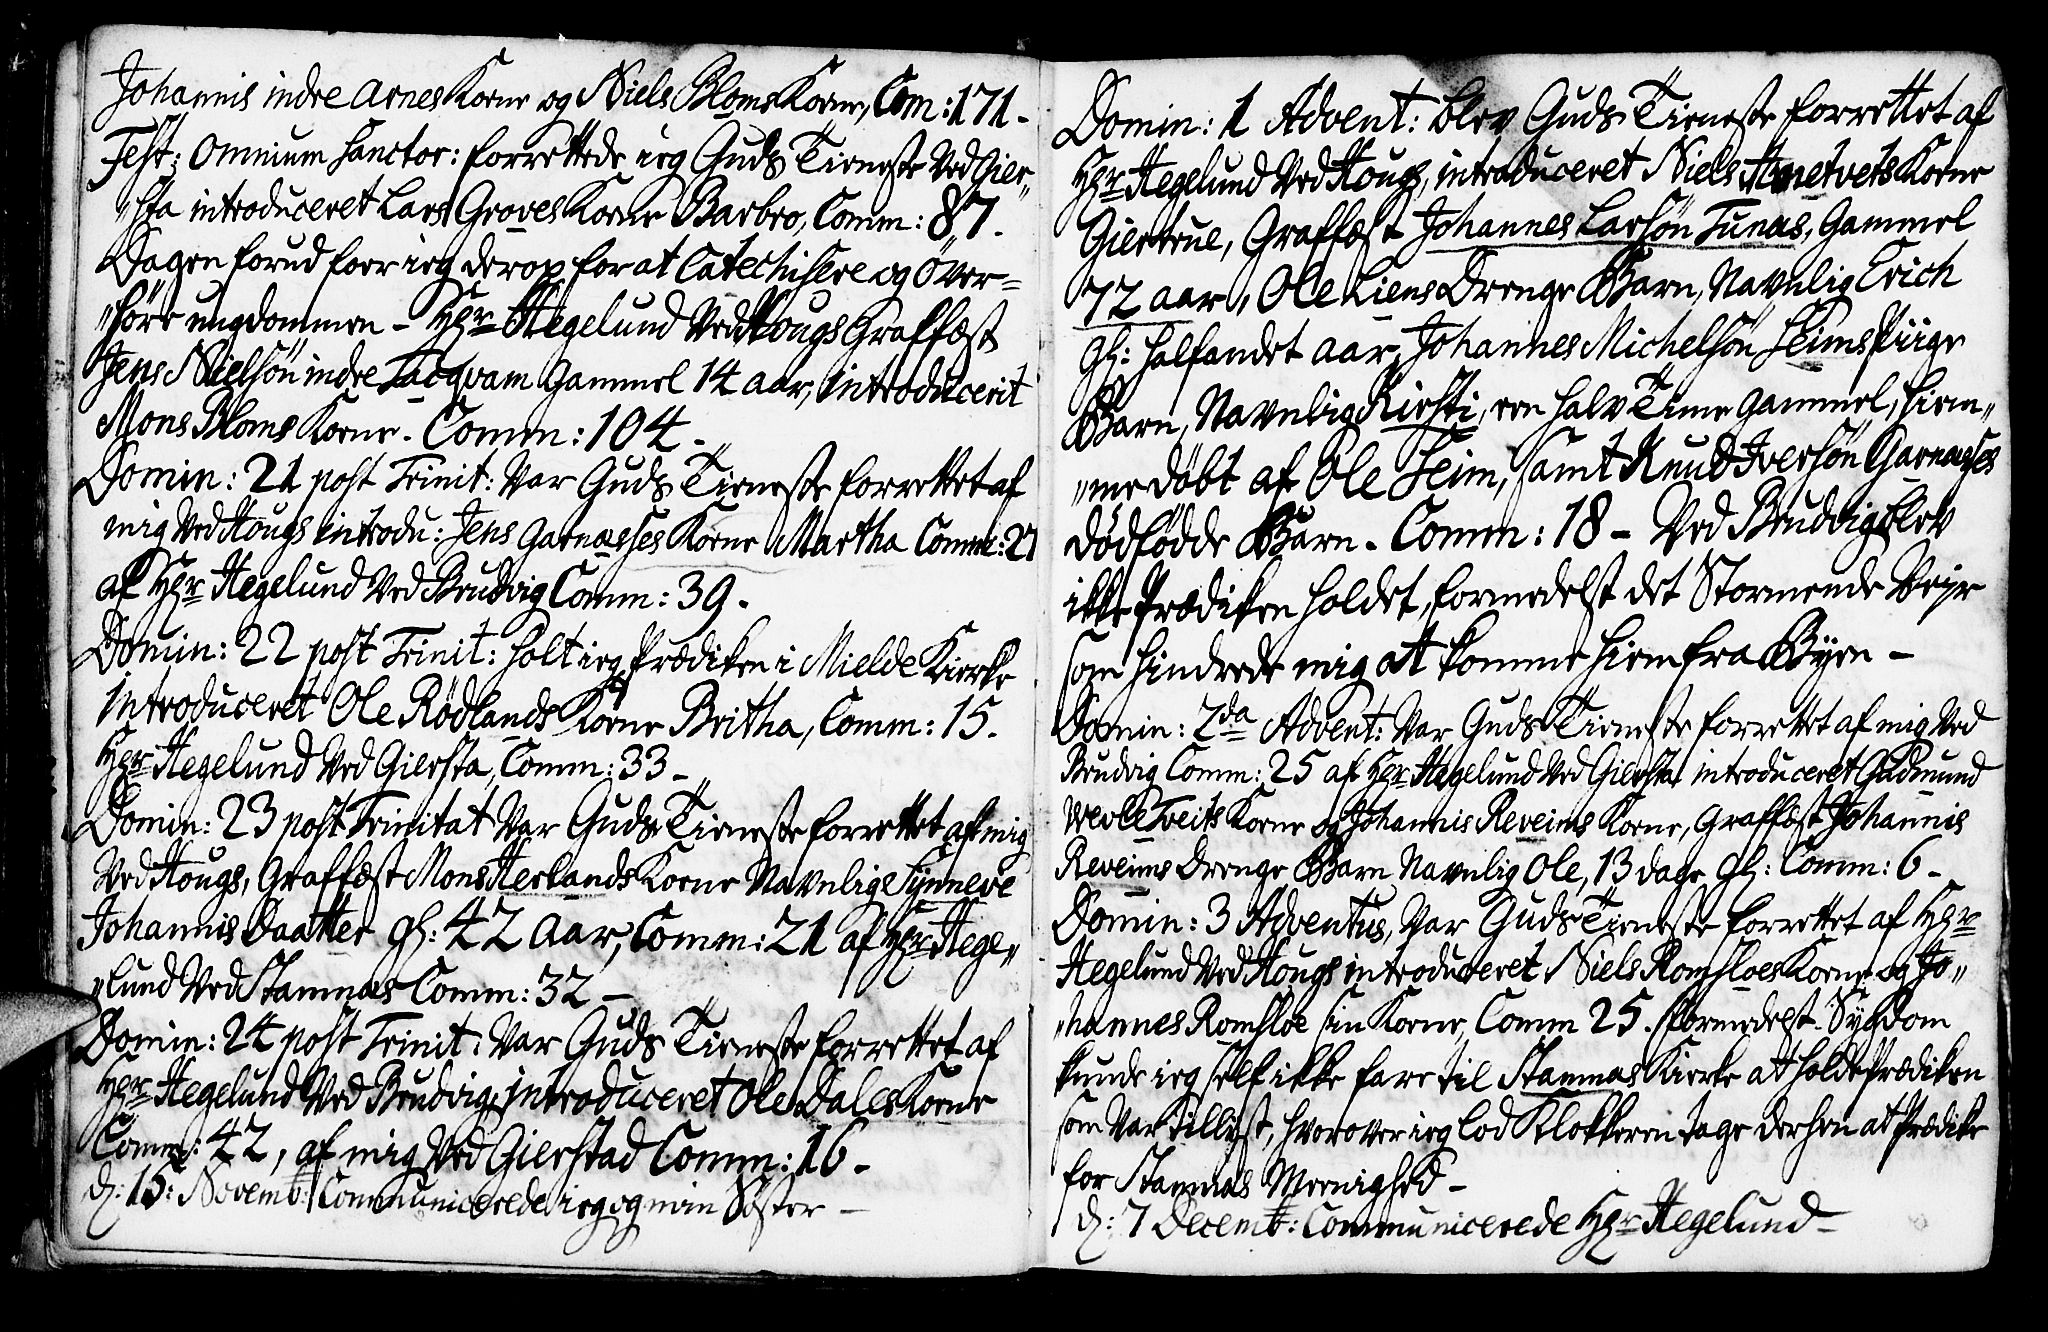 Johannis indre Arnes Kone og Niels Bloms Kone, Com: 171 -
Fest: Omnium Sanctor: forrettede ieg Guds Tieneste Ved Gier„
„sta introduceret Lars Groves Kone Barbro, Comm: 87.
Dagen forud foer ieg derop for at Catechisere og över=
„höre ungdommen - Hr Hegelund Ved Hougs Graffæst
Jens Nielsön indre Tacqvam gammel 14 aar, introducerit
Mons Bloms Kone. Comm: 104 -
Domin: 21 post Trinit: Var Guds Tieneste forrettet af
mig Ved Hougs introdu: Jens Garnæsses Kone Martha Comm: 27
af Hr Hegelund Ved Brudvig Comm: 39.
Domin: 22 post Trinit: holt ieg Prædiken i Mielde Kierke
introduceret Ole Rödlands Kone Britha, Comm: 15.
Hr Hegelund Ved Giersta, Comm: 33 -
Domin: 23 post Trinitat Var Guds Tieneste forrettet af mig
Ved Hougs, Graffæst Mons Herlands Kone Navnlige Synneve
Johannis Daatter gl: 42 Aar, Comm: 21 af Hr Hege„
„lund Ved Stamnæs Comm: 32 -
Domin: 24 post Trinit: Var Guds Tieneste forrettet af
Hr Hegelund Ved Brudvig, introduceret Ole Dales Kone
Comm: 42, af mig Ved Gierstad Comm: 16 -
d: 15: Novemb: Communicerede ieg og min Söster -
Domin: 1 Advent: blev Guds Tieneste forrettet af
Hr Hegelund Ved Hougs, introduceret Niels Kone
Giertrue, Graffæst Johannes Larsön Tunæs, Gammel
72 aar, Ole Liens Drenge Barn, Navnlig Erich
gl: halfandet aar, Johannes Michelsön Seims Piige
Barn, Navnlig Kirsti, een halv Time gammel, hiem„
„me döbt af Ole Seim, samt Knud Iversön Garnæsses
dödfödde Barn. Comm: 18 - Ved Brudvig blev
ikke Prædiken holdet, formedelst det Stormende Veyr
som hindrede mig at komme hiem fra Byen -
Domin: 2da Advent: Var Guds Tieneste forrettet af mig Ved
Brudvig Comm: 25 af Hr Hegelund Ved Giersta introduceret Gudmund
Vevletveits Kone og Johannis Reveims Kone, Graffæst Johannis
Reveims Drenge Barn Navnlig Ole, 13 dage gl: Comm: 6 -
Domin: 3 Adventus, Var Guds Tieneste forrettet af Hr
Hegelund Ved Hougs introduceret Niels Romsloes Kone og Jo„
„hannes Romsloe sin Kone, Comm 25. formedelst Sygdom
kunde ieg self ikke fare til Stamnæs Kierke at holde Prædiken
som Var tillyst, hvorover ieg lod Klokkeren tage derhen at Prædike
for Stamnæs Meenighed -
d: 7 Decemb: Communicerede Hr Hegelund -